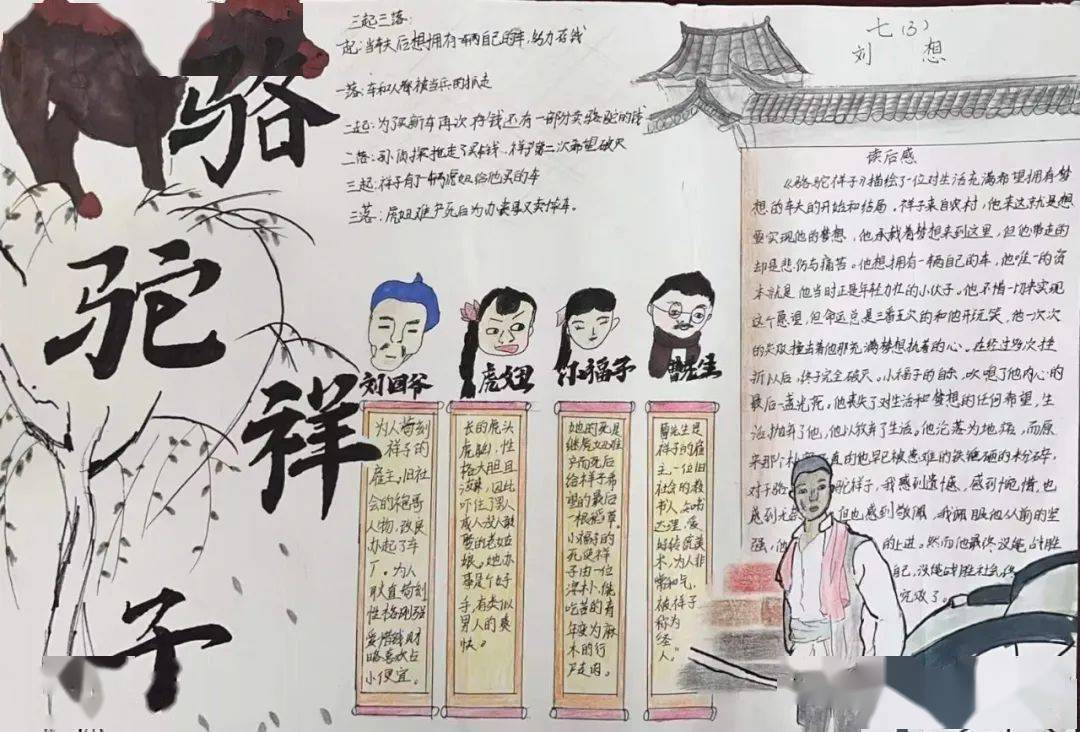 骆
驼
祥
子
三起三落:
一起:当车夫后想拥有一辆自己的车,努力存钱
一落:车和人都被当兵的抓走
二起:为了买新车再次存钱还有一部分卖骆驼的钱
二落:孙侦探抢走了买车钱,祥子第二次希望破灭
三起:祥子有了一辆虎妞给他买的车
三落:虎妞难产死后为办丧事又卖掉车。
七(3)
刘 想
刘四爷
为人苛刻
祥子的
雇主。旧社
会的袍哥
人物,改良
办起了车
厂。为人
耿直苛刻
性格刚强
爱惜钱财
略喜欢占
小便宜。
虎妞
长的虎头
虎脑,性
格大胆且
泼辣,因此
吓住了男人
成人没人敢
娶的老姑
娘。她办
事是个好
手,有类似
男人的爽
快。
小福子
她的死是
继虎妞难
产而死后
给祥子希
望的最后
一根稻草。
小福子的
死使祥
子由一位
淳朴、能
吃苦的青
年变为麻
木的行
尸走肉。
曹先生
曹先生是
祥子的雇
主,一位旧
社会的教
书人,知书
达理,爱
好传统美
术,为人非
常和气,
被祥子
称为
“圣
人”。
读后感
《骆驼祥子》描绘了一位对生活充满希望拥有梦
想的车夫的开始和结局。祥子来自农村,他来这就是想
要实现他的梦想,他承载着梦想来到这里,但他带走的
却是悲伤与痛苦。他想拥有一辆自己的车,他唯一的资
本就是他当时正是年轻力壮的小伙子。他不惜一切来实现
这个愿望,但命运总是三番五次的和他开玩笑,他一次次
的失败撞击着他那充满梦想执着的心。在经过多次挫
折以后,终于完全破灭。小福子的自杀,吹熄了他内心的
最后一盏光亮,他丧失了对生活和梦想的任何希望,生
活抛弃了他,他以放弃了生活。他沦落为地痞。而原
来那个朴 真的他早已被苦难的铁锤砸的粉碎。
对于骆 驼祥子,我感到遗憾,感到惋惜,也
感到无 但也感到敬佩,我佩服他从前的坚
强,他 的上进。然而他最终没能战胜
自己,没能战胜社会,终
究败了。